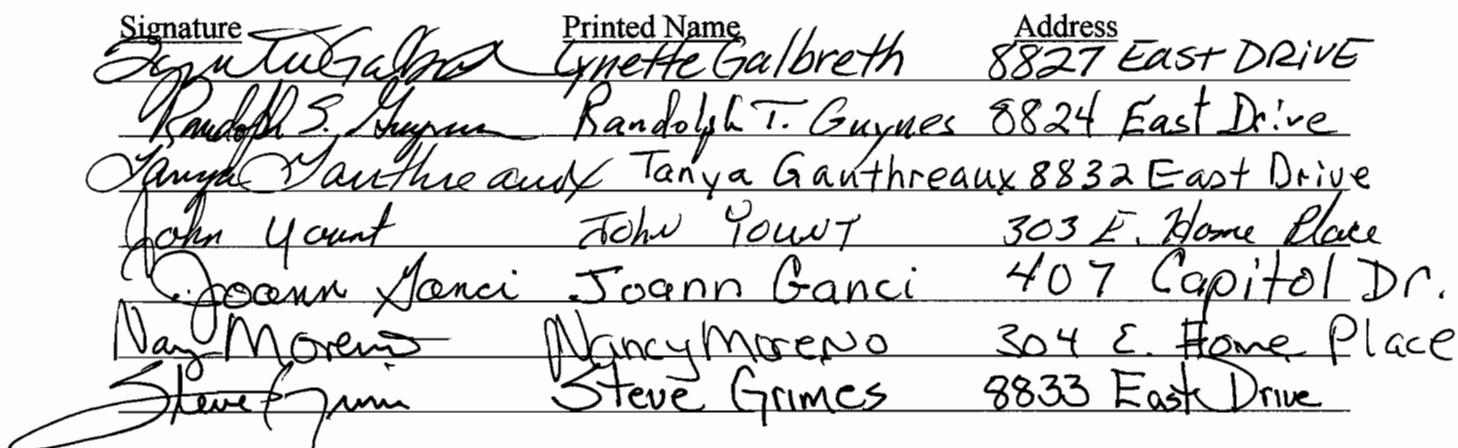 Signature Printed Name Address
Lynette Galbreth 8827 East DRIVE
Randolph S. Guynes Randolph T. Guynes 8824 East Drive
Tanya Gauthreaux Tanya Gauthreaux 8832 East Drive
John Yount John Yount 303 E. Home Place
Joann Ganci Joann Ganci 407 Capitol Dr.
Nancy Moreno Nancy Moreno 304 E. Home Place
Steve Grimes Steve Grimes 8833 East Drive